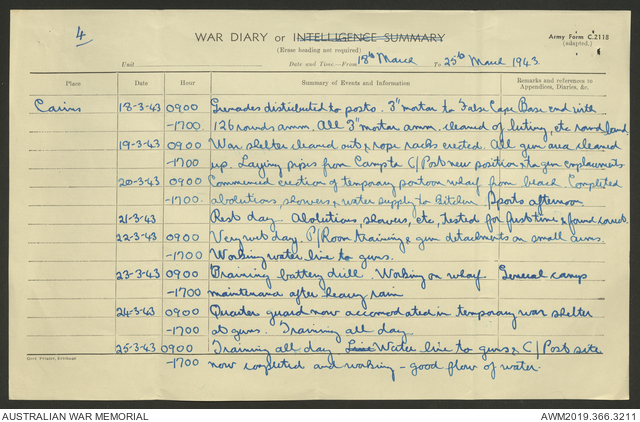 4
WAR DIARY or INTELLIGENCE SUMMARY
Army Form C.2118
(Erase heading not required)
(adapted.)
Unit Date and Time.—From 18th March To 25th March 1943.
Place Date Hour Summary of Events and Information Remarks and references to Appendices, Diaries, &c.
Cairns 18-3-43 0900 Grenades distributed to posts. 3" mortar to False Cape Base end with
-1700. 126 rounds amm. All 3" mortar amm. cleaned of luting, etc
19-3-43 0900 War shelter cleaned out & rope racks erected. All gun area cleaned
-1700 up. Laying pipes from Camp to C/Post new position & to gun emplacements
20-3-43 0900 Commenced erection of temporary pontoon wharf from beach. Completed
-1700. ablutions, showers, & water supply to kitchen. Sports afternoon
21-3-43 Rest day. Ablutions, showers, etc, tested for first time & found correct.
22-3-43 0900 Very wet day. P/Room training & gun detachments on small arms.
-1700 Working water line to guns.
23-3-43 0900 Training battery drill. Working on wharf. General camp
-1700 maintenance after heavy rain
24-3-43 0900 Quarter guard now accomodated in temporary war shelter
-1700 at guns. Training all day
25-3-43 0900 Training all day Line Water line to guns & C/Post site
-1700 now completed and working - good flow of water.
AUSTRALIAN WAR MEMORIAL
AWM2019.366.3211